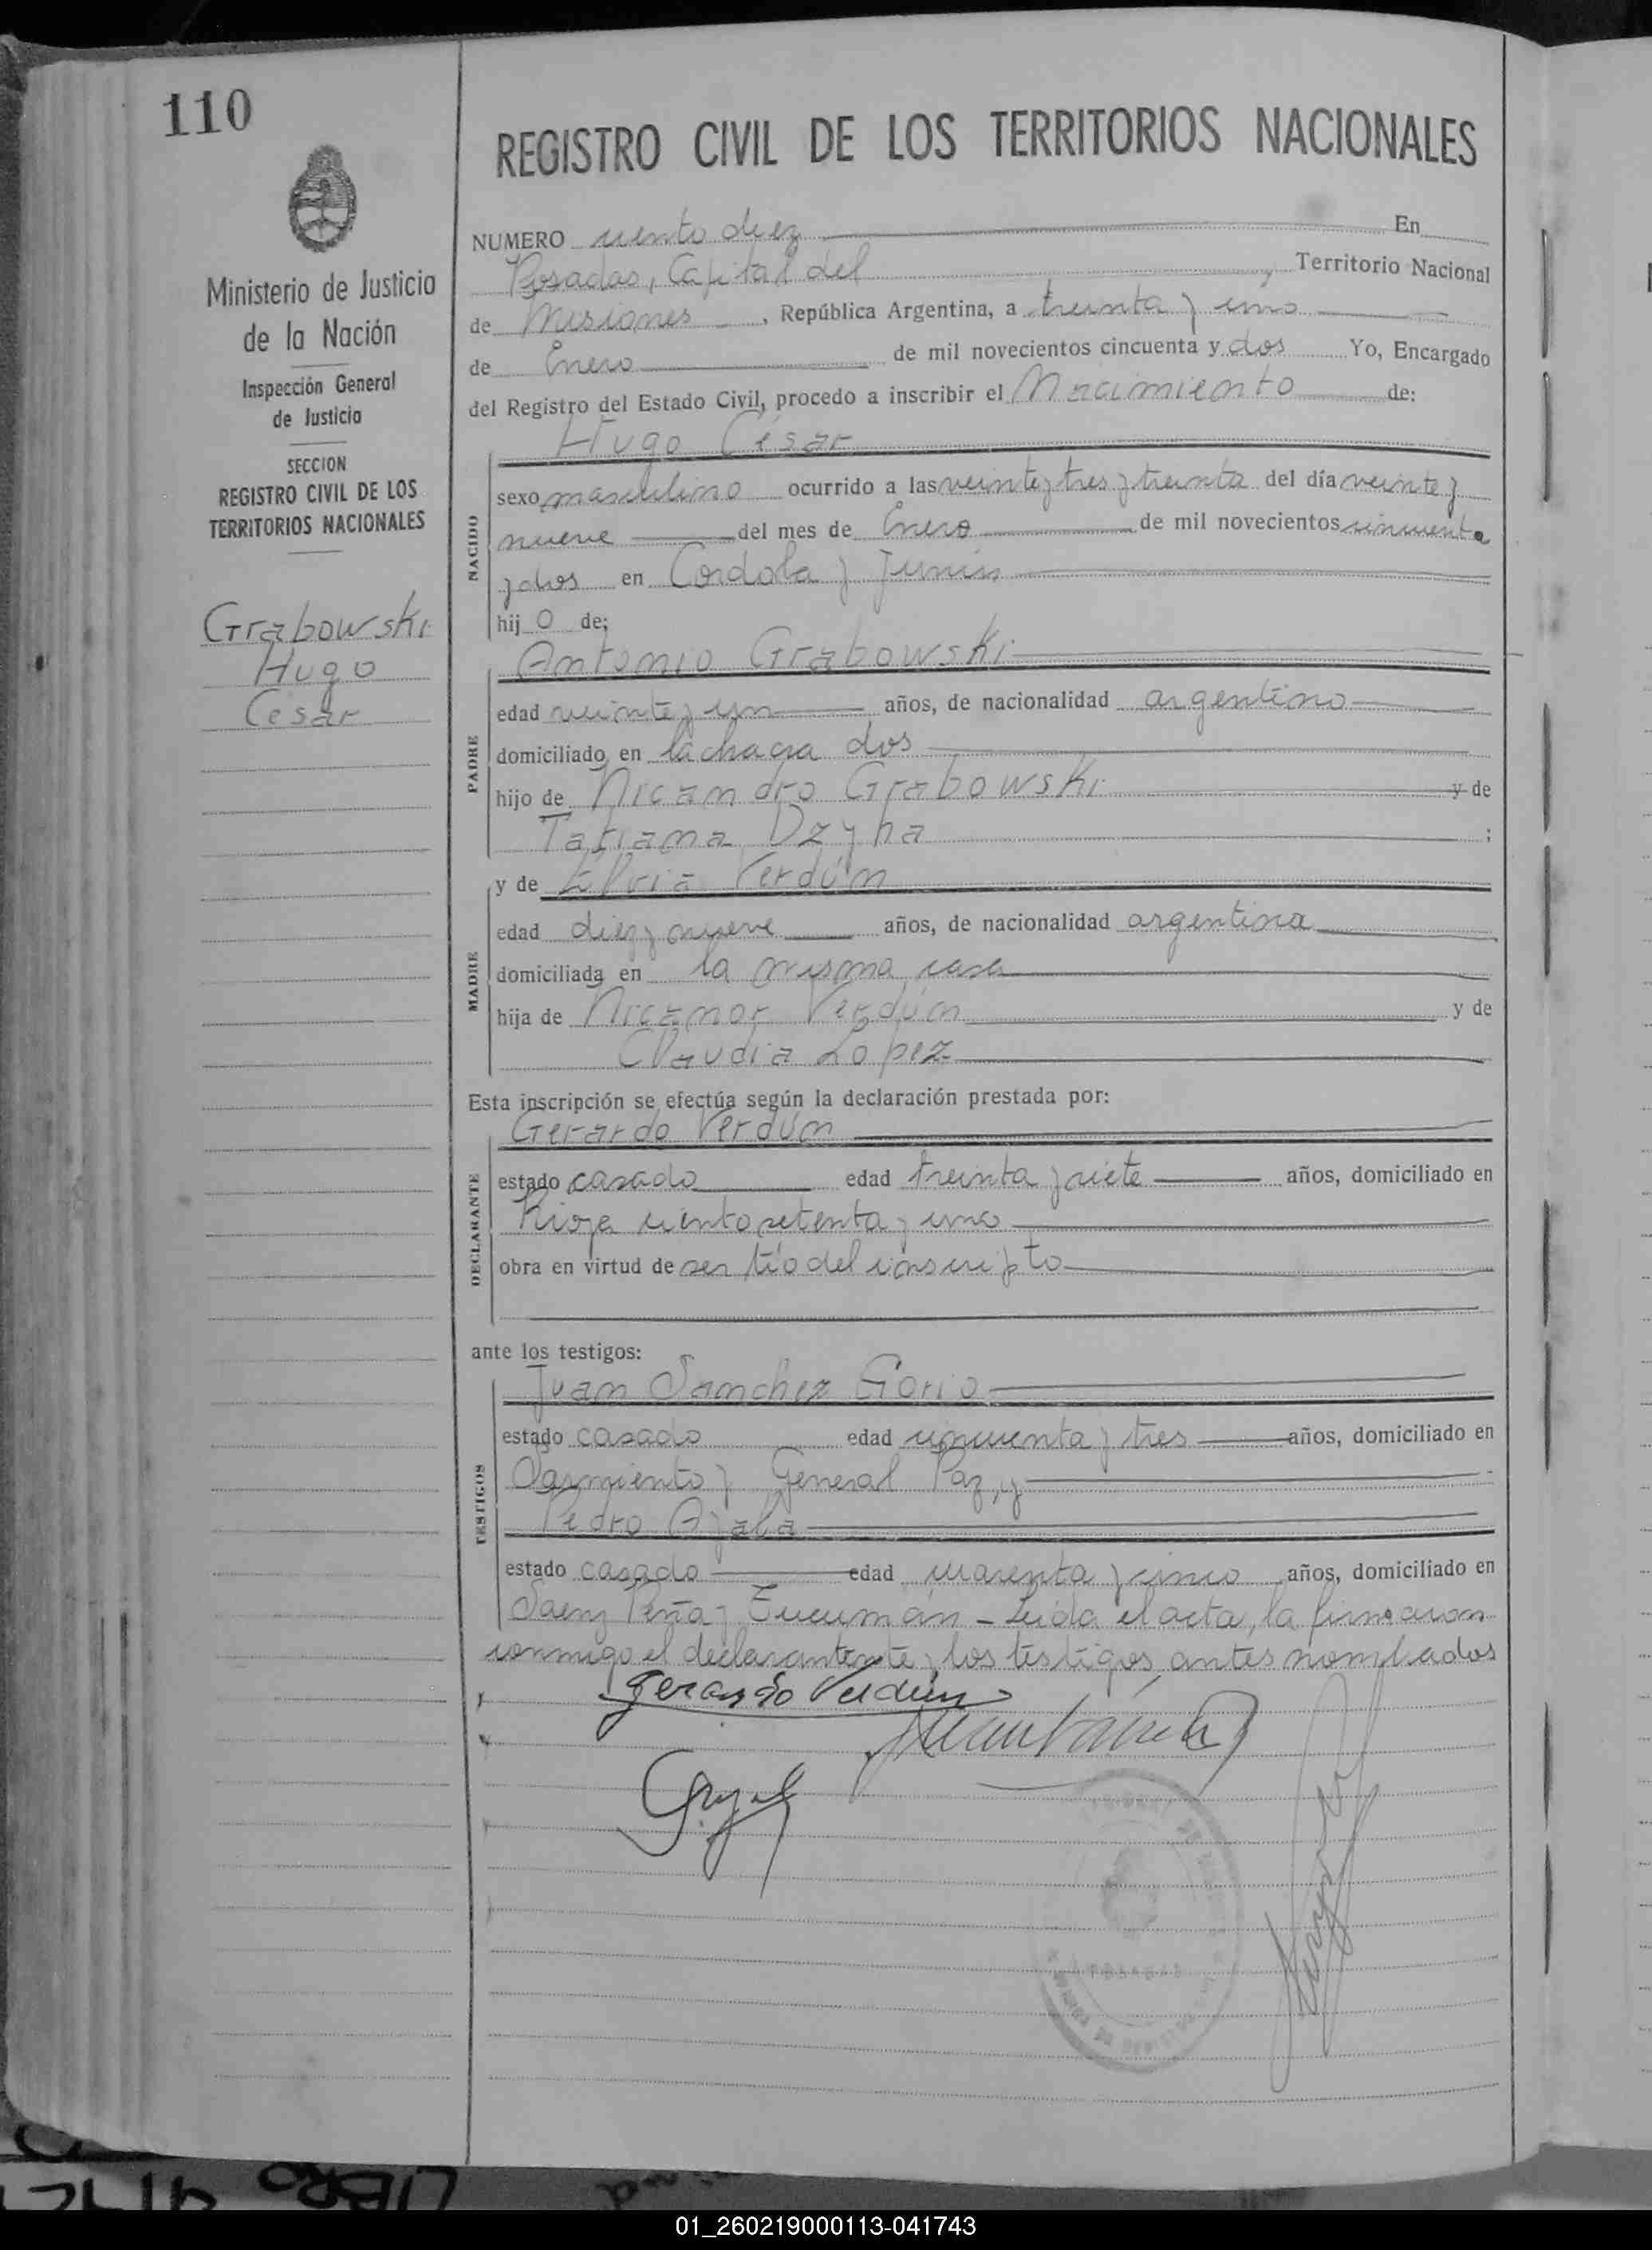 110
Ministerio de Justicia
de la Nación
Inspección General
de Justicia
SECCION
REGISTRO CIVIL DE LOS
TERRITORIOS NACIONALES
Grabowski
Hugo
Cesar
REGISTRO CIVIL DE LOS TERRITORIOS NACIONALES
NUMERO ciento diez En
Posadas, Capital del , Territorio Nacional
de Misiones , República Argentina, a treinta y uno
de Enero de mil novecientos cincuenta y dos Yo, Encargado
del Registro del Estado Civil, procedo a inscribir el Nacimiento de:
Hugo César
NACIDO
sexo masculino ocurrido a las veinte y tres y treinta del día veinte y
nueve del mes de Enero de mil novecientos cincuenta
y dos en Cordoba y Junin
hij o de:
Antonio Grabowski
PADRE
edad veinte y un años, de nacionalidad argentino
domiciliado en la chacra dos
hijo de Nicandro Grabowski y de
Tatiana Dzyha ;
MADRE
y de Elvia Verdún
edad diez y nueve años, de nacionalidad argentina
domiciliada en la misma casa
hija de Nicanor Verdún y de
Claudia Lopez
Esta inscripción se efectúa según la declaración prestada por:
Gerardo Verdún
DECLARANTE
estado casado edad treinta y siete años, domiciliado en
Rioja ciento setenta y uno
obra en virtud de ser tío del inscripto
ante los testigos:
Juan Sanchez Gorio
TESTIGOS
estado casado edad cincuenta y tres años, domiciliado en
Sarmiento y General Paz, y
Pedro Ayala
estado casado edad cuarenta y cinco años, domiciliado en
Saenz Peña y Tucumán - Leida el acta, la firmaron
conmigo el declarantente y los testigos antes nombrados
Gerardo Verdun
POSADAS
LIBRO
01_260219000113-041743